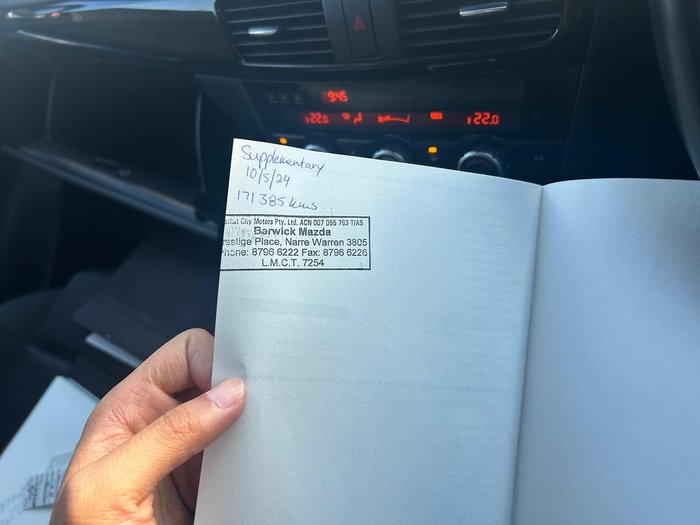 9:45
22.0
22.0
Supplementary
10/5/24
171 385 kms..
City Motors Pty. Ltd. ACN 007 065 763 T/AS
Berwick Mazda
Place, Narre Warren 3805
Phone: 8796 6222 Fax: 8796 6226
L.M.C.T. 7254